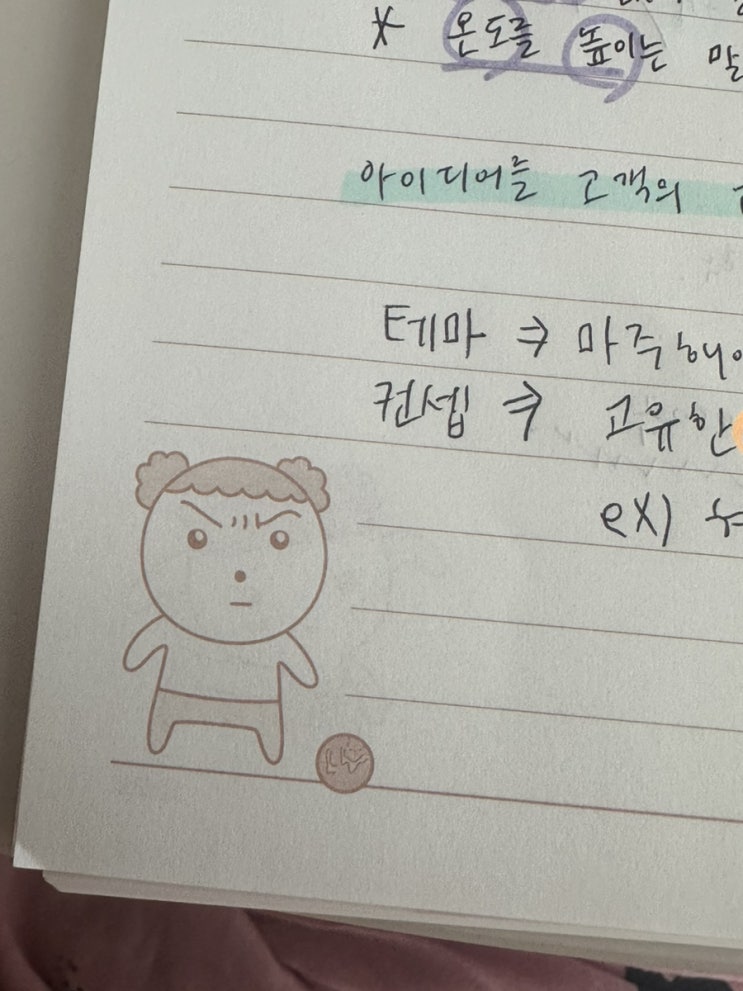 * 온도를 높이는 말
아이디어를 고객의
테마 ⇒ 마주해
컨셉 ⇒ 고유한
ex)